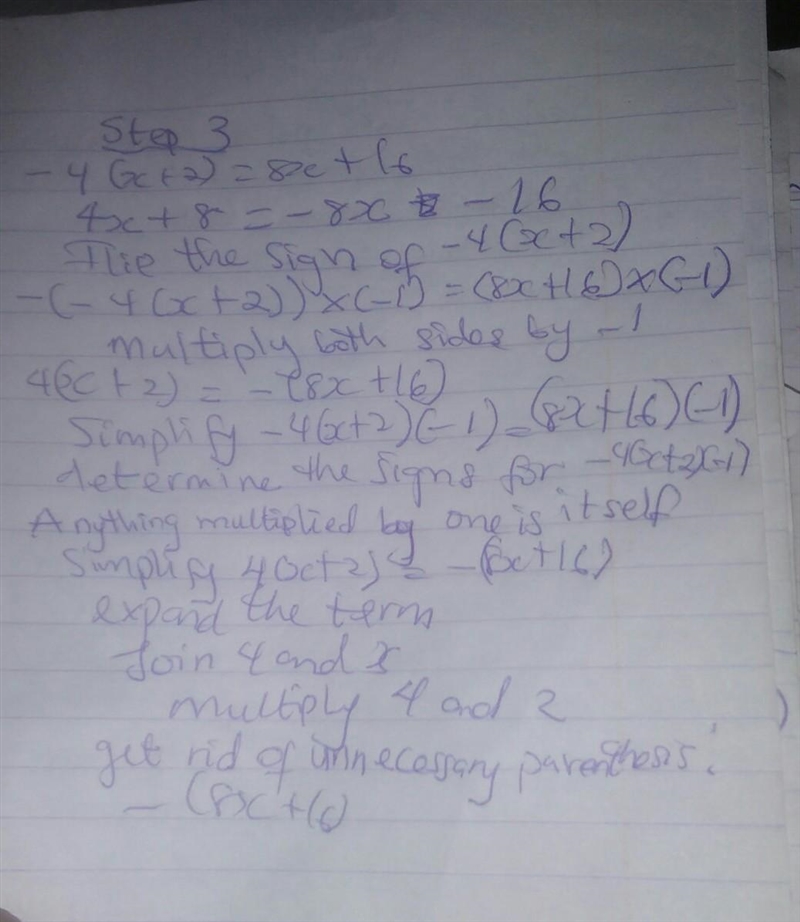 Step 3
-4(x+2) = 8x+16
4x+8 = -8x -16
Flie the sign of -4(x+2)
-(-4(x+2))×(-1) = (8x+16)×(-1)
multiply both sides by -1
4(x+2) = -(8x+16)
Simplify -4(x+2)(-1) = (8x+16)(-1)
determine the signs for -4(x+2)(-1)
Anything multiplied by one is itself
Simplify 4(x+2) = -(8x+16)
expand the term
Join 4 and x
multiply 4 and 2
get rid of unnecessary parenthesis.
- (8x+16)